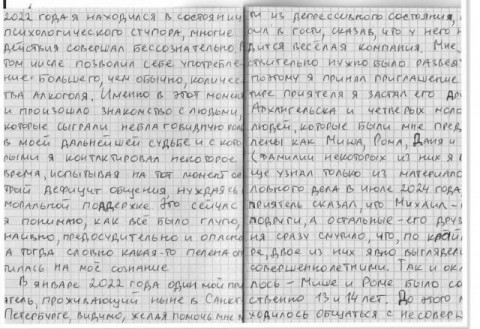 2022 года я находился в состоянии
психологического ступора, многие
действия совершал бессознательно. В
том числе позволил себе употребле-
ние большего, чем обычно, количес-
тва алкоголя. Именно в этот момен
и произошло знакомство с людьми,
которые сыграли неблаговидную ро
в моей дальнейшей судьбе и с кото-
рыми я контактировал некоторое
время, испытывая на тот момент ос-
трый дефицит общения, нуждаясь
моральной поддержке. Это сейчас
я понимаю, как всё было глупо,
наивно, предосудительно и опасно
а тогда словно какая-то пелена оп
тилась на моё сознание.
В январе 2022 года один мой при
ятель, проживающий ныне в Санкт-
Петербурге, видимо, желая помочь мне
ти из депрессивного состояния,
сил в гости, сказав, что у него н
дится весёлая компания. Мне
ствительно нужно было развея
поэтому я принял приглашение
тире приятеля я застал его др
Архангельска и четверых моло
людей, которые были мне пред
лены как Миша, Рома, Даня и
(фамилии некоторых из них я в
ще узнал только из материало
ловного дела в июле 2024 года
приятель сказал, что Михаил -
подруги, а остальные - его друз
ня сразу смутило, что, по край
ре, двое из них явно выглядел
совершеннолетними. Так и ок
лось - Мише и Роме было со
ственно 13 и 14 лет. До этого м
ходилось общаться с несовер